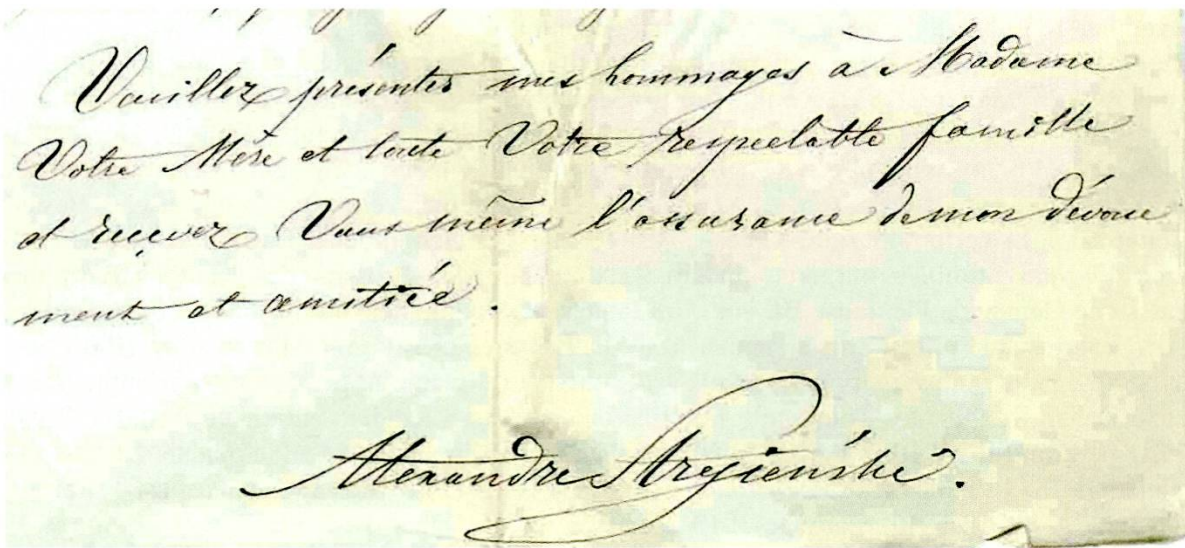 Veuillez présenter mes hommages à Madame
Votre Mère et toute Votre respectable famille
et reçevez Vous même l'assurance de mon dévoue
ment et amitiée.
Alexandre Stryieński.